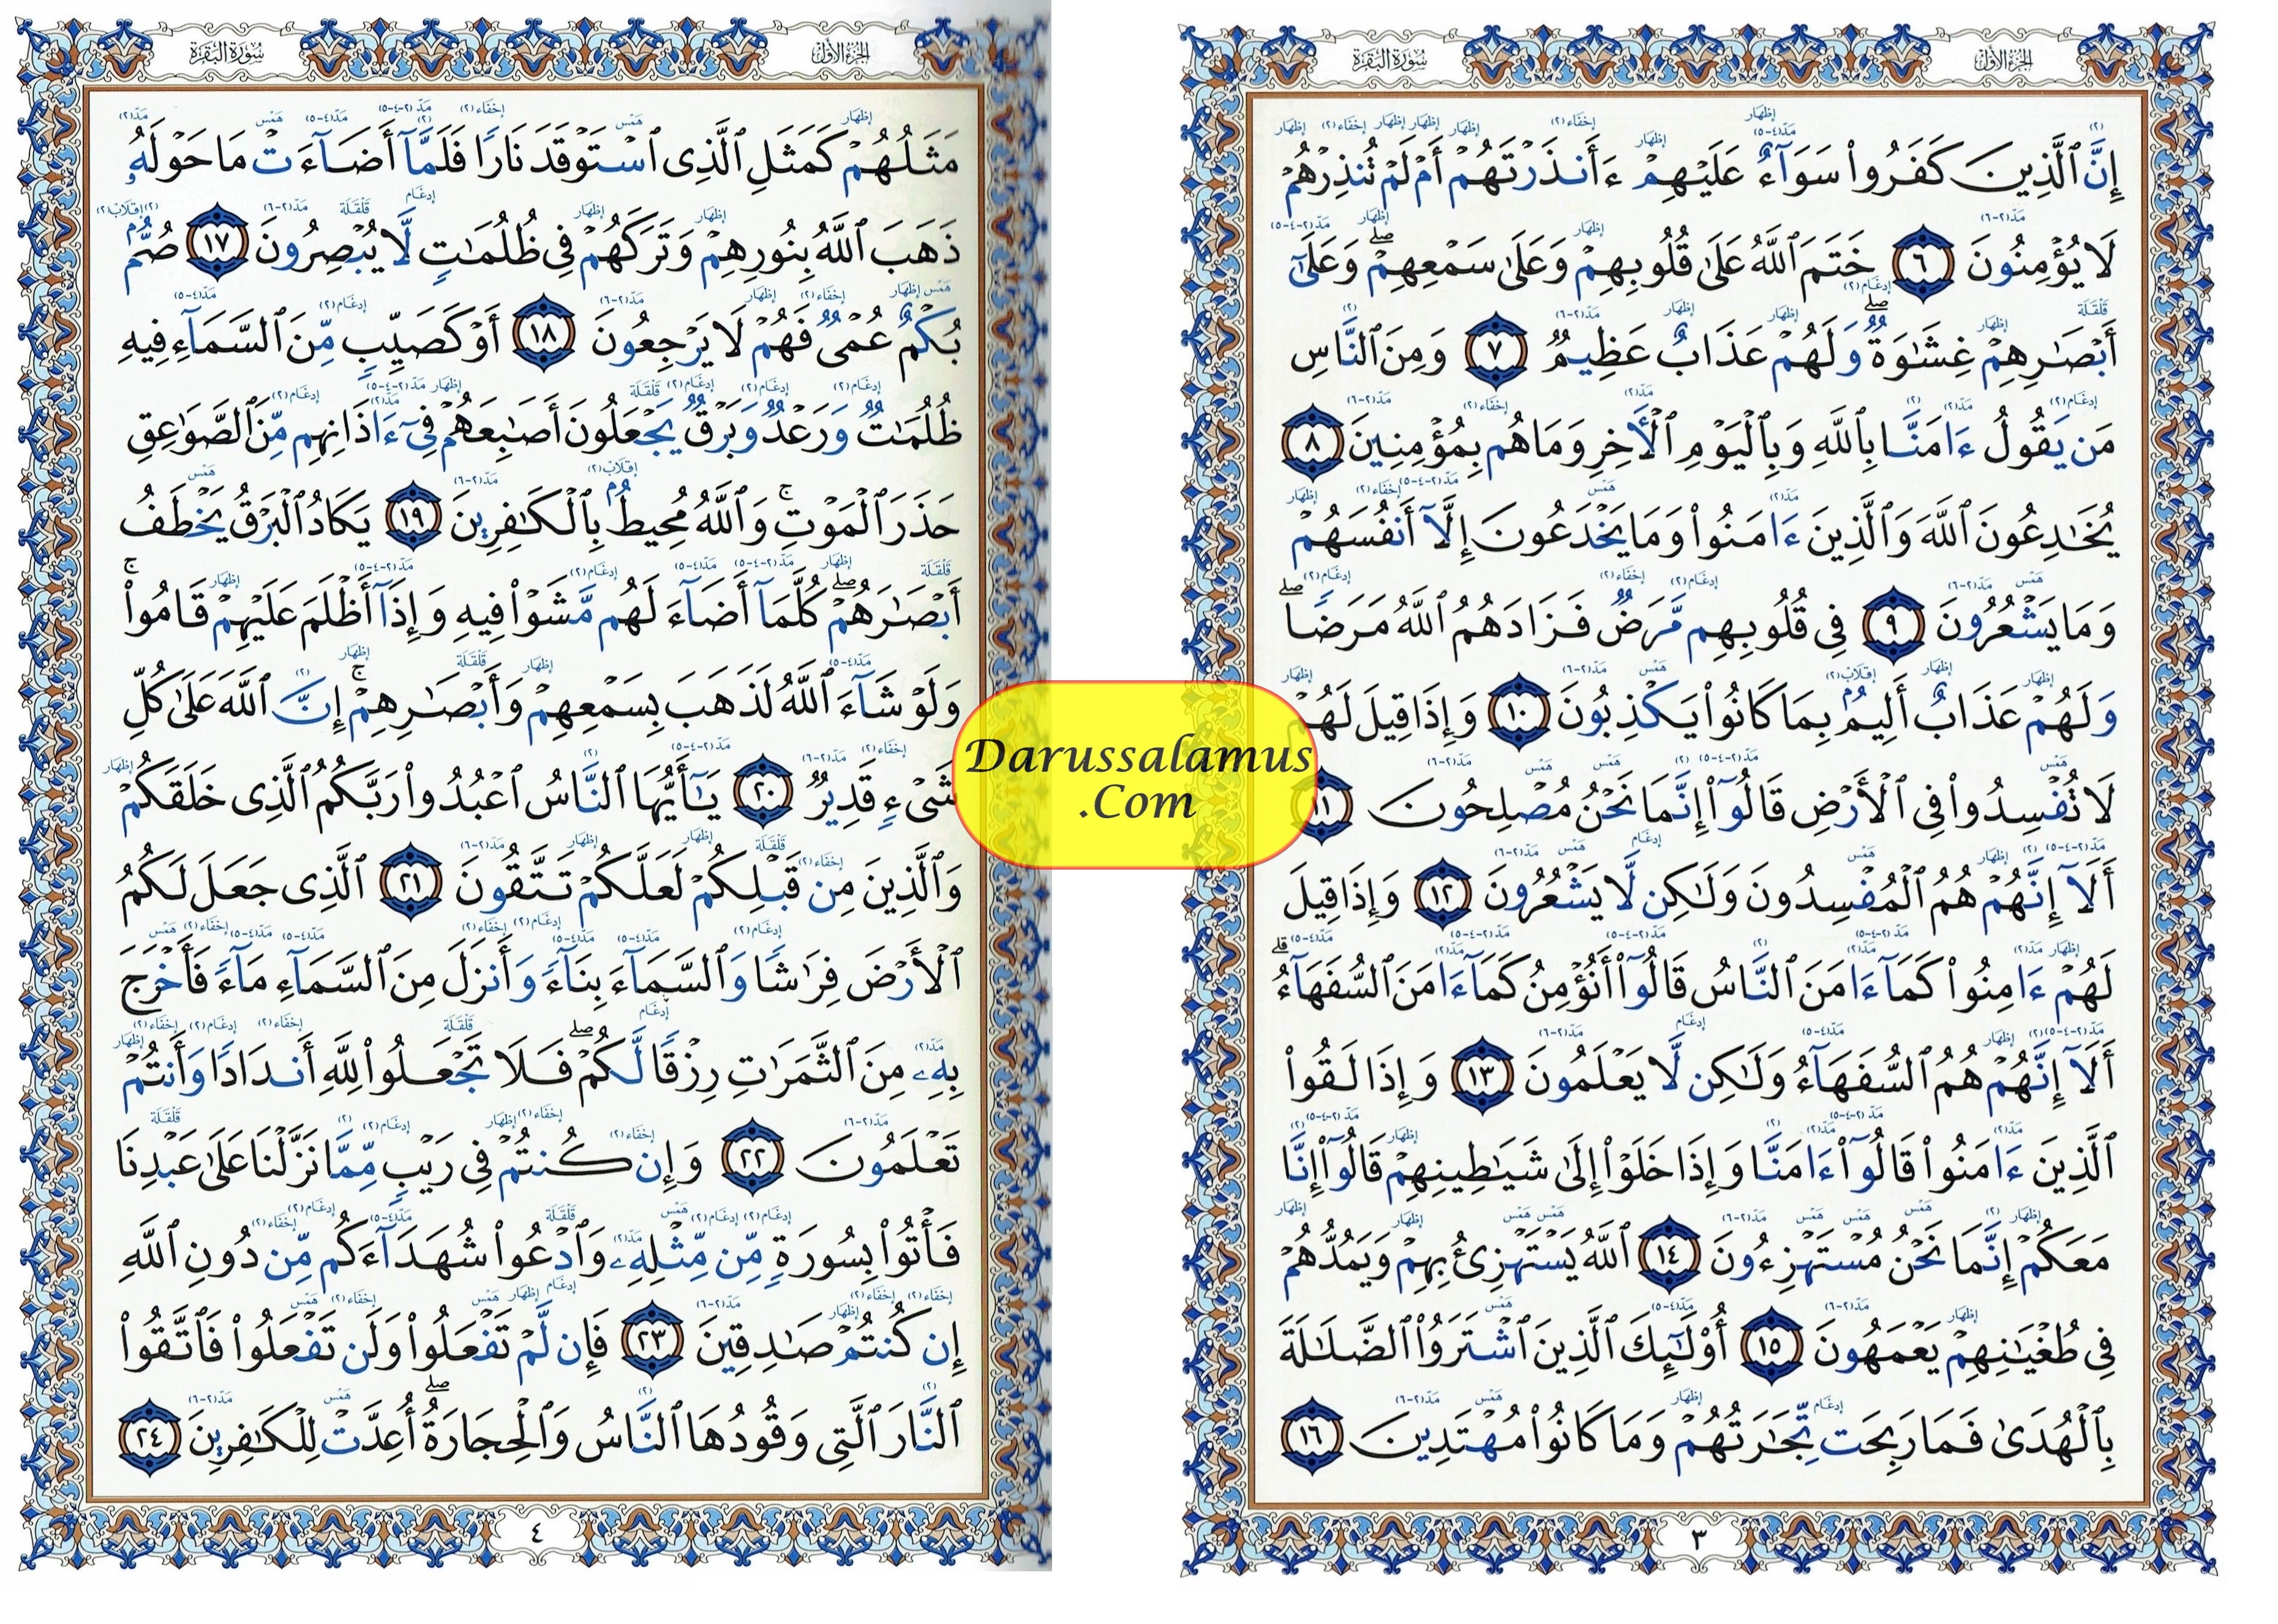 الجزء الأول
سورة البقرة
إِنَّ ٱلَّذِينَ كَفَرُوا۟ سَوَآءٌ عَلَيْهِمْ ءَأَنذَرْتَهُمْ أَمْ لَمْ تُنذِرْهُمْ
لَا يُؤْمِنُونَ ٦ خَتَمَ ٱللَّهُ عَلَىٰ قُلُوبِهِمْ وَعَلَىٰ سَمْعِهِمْ ۖ وَعَلَىٰٓ
أَبْصَـٰرِهِمْ غِشَـٰوَةٌ ۖ وَلَهُمْ عَذَابٌ عَظِيمٌ ٧ وَمِنَ ٱلنَّاسِ
مَن يَقُولُ ءَامَنَّا بِٱللَّهِ وَبِٱلْيَوْمِ ٱلْـَٔاخِرِ وَمَا هُم بِمُؤْمِنِينَ ٨
يُخَـٰدِعُونَ ٱللَّهَ وَٱلَّذِينَ ءَامَنُوا۟ وَمَا يَخْدَعُونَ إِلَّآ أَنفُسَهُمْ
وَمَا يَشْعُرُونَ ٩ فِى قُلُوبِهِم مَّرَضٌ فَزَادَهُمُ ٱللَّهُ مَرَضًا ۖ
وَلَهُمْ عَذَابٌ أَلِيمٌۢ بِمَا كَانُوا۟ يَكْذِبُونَ ١٠ وَإِذَا قِيلَ لَهُمْ
لَا تُفْسِدُوا۟ فِى ٱلْأَرْضِ قَالُوٓا۟ إِنَّمَا نَحْنُ مُصْلِحُونَ ١١
أَلَآ إِنَّهُمْ هُمُ ٱلْمُفْسِدُونَ وَلَـٰكِن لَّا يَشْعُرُونَ ١٢ وَإِذَا قِيلَ
لَهُمْ ءَامِنُوا۟ كَمَآ ءَامَنَ ٱلنَّاسُ قَالُوٓا۟ أَنُؤْمِنُ كَمَآ ءَامَنَ ٱلسُّفَهَآءُ ۗ
أَلَآ إِنَّهُمْ هُمُ ٱلسُّفَهَآءُ وَلَـٰكِن لَّا يَعْلَمُونَ ١٣ وَإِذَا لَقُوا۟
ٱلَّذِينَ ءَامَنُوا۟ قَالُوٓا۟ ءَامَنَّا وَإِذَا خَلَوْا۟ إِلَىٰ شَيَـٰطِينِهِمْ قَالُوٓا۟ إِنَّا
مَعَكُمْ إِنَّمَا نَحْنُ مُسْتَهْزِءُونَ ١٤ ٱللَّهُ يَسْتَهْزِئُ بِهِمْ وَيَمُدُّهُمْ
فِى طُغْيَـٰنِهِمْ يَعْمَهُونَ ١٥ أُو۟لَـٰٓئِكَ ٱلَّذِينَ ٱشْتَرَوُا۟ ٱلضَّلَـٰلَةَ
بِٱلْهُدَىٰ فَمَا رَبِحَت تِّجَـٰرَتُهُمْ وَمَا كَانُوا۟ مُهْتَدِينَ ١٦
٣
الجزء الأول
سورة البقرة
مَثَلُهُمْ كَمَثَلِ ٱلَّذِى ٱسْتَوْقَدَ نَارًا فَلَمَّآ أَضَآءَتْ مَا حَوْلَهُۥ
ذَهَبَ ٱللَّهُ بِنُورِهِمْ وَتَرَكَهُمْ فِى ظُلُمَـٰتٍ لَّا يُبْصِرُونَ ١٧ صُمٌّۢ
بُكْمٌ عُمْىٌ فَهُمْ لَا يَرْجِعُونَ ١٨ أَوْ كَصَيِّبٍ مِّنَ ٱلسَّمَآءِ فِيهِ
ظُلُمَـٰتٌ وَرَعْدٌ وَبَرْقٌ يَجْعَلُونَ أَصَـٰبِعَهُمْ فِىٓ ءَاذَانِهِم مِّنَ ٱلصَّوَٰعِقِ
حَذَرَ ٱلْمَوْتِ ۚ وَٱللَّهُ مُحِيطٌۢ بِٱلْكَـٰفِرِينَ ١٩ يَكَادُ ٱلْبَرْقُ يَخْطَفُ
أَبْصَـٰرَهُمْ ۖ كُلَّمَآ أَضَآءَ لَهُم مَّشَوْا۟ فِيهِ وَإِذَآ أَظْلَمَ عَلَيْهِمْ قَامُوا۟ ۚ
وَلَوْ شَآءَ ٱللَّهُ لَذَهَبَ بِسَمْعِهِمْ وَأَبْصَـٰرِهِمْ ۚ إِنَّ ٱللَّهَ عَلَىٰ كُلِّ
شَىْءٍ قَدِيرٌ ٢٠ يَـٰٓأَيُّهَا ٱلنَّاسُ ٱعْبُدُوا۟ رَبَّكُمُ ٱلَّذِى خَلَقَكُمْ
وَٱلَّذِينَ مِن قَبْلِكُمْ لَعَلَّكُمْ تَتَّقُونَ ٢١ ٱلَّذِى جَعَلَ لَكُمُ
ٱلْأَرْضَ فِرَٰشًا وَٱلسَّمَآءَ بِنَآءً وَأَنزَلَ مِنَ ٱلسَّمَآءِ مَآءً فَأَخْرَجَ
بِهِۦ مِنَ ٱلثَّمَرَٰتِ رِزْقًا لَّكُمْ ۖ فَلَا تَجْعَلُوا۟ لِلَّهِ أَندَادًا وَأَنتُمْ
تَعْلَمُونَ ٢٢ وَإِن كُنتُمْ فِى رَيْبٍ مِّمَّا نَزَّلْنَا عَلَىٰ عَبْدِنَا
فَأْتُوا۟ بِسُورَةٍ مِّن مِّثْلِهِۦ وَٱدْعُوا۟ شُهَدَآءَكُم مِّن دُونِ ٱللَّهِ
إِن كُنتُمْ صَـٰدِقِينَ ٢٣ فَإِن لَّمْ تَفْعَلُوا۟ وَلَن تَفْعَلُوا۟ فَٱتَّقُوا۟
ٱلنَّارَ ٱلَّتِى وَقُودُهَا ٱلنَّاسُ وَٱلْحِجَارَةُ ۖ أُعِدَّتْ لِلْكَـٰفِرِينَ ٢٤
٤
Darussalamus
.Com